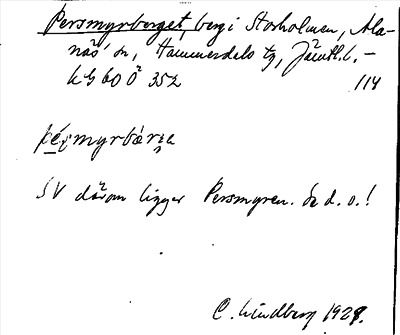 Persmyrberget, berg i Storholmen, Ala-
näs' sn, Hammerdals tg, Jämtl. l. –
kg 60 Ö 352 114
pérsmyrbærja
SV därom ligger Persmyren. Se d. o.!
C. Lindberg 1928.